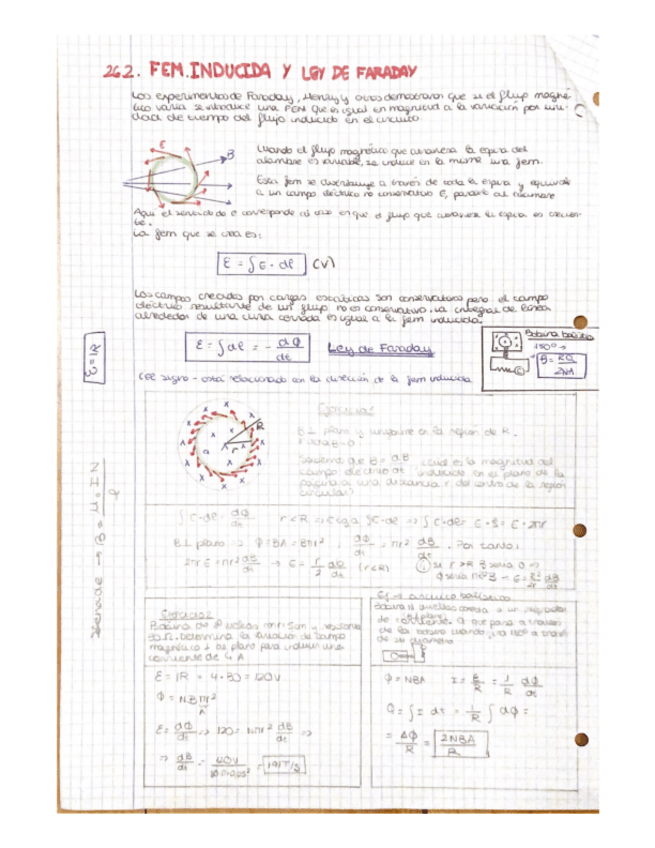 26.2. FEM. INDUCIDA Y LEY DE FARADAY
Los experimentos de Faraday, Henry y otros demostraron que si el flujo magné-
tico varía se introduce una FEM que es igual en magnitud a la variación por uni-
dad de tiempo del flujo inducido en el circuito
E
B
Cuando el flujo magnético que atraviesa la espira del
alambre es variable, se induce en la misma una fem.
Esta fem se distribuye a través de toda la espira y equivale
a un campo eléctrico no conservativo E, paralelo al alambre
Aquí el sentido de E corresponde al caso en que el flujo que atraviesa la espira es crecien-
te.
La fem que se crea es:
ℰ = ∫ E · dl (V)
Los campos creados por cargas estáticas son conservativos pero el campo
eléctrico resultante de un flujo no es conservativo. La integral de línea
alrededor de una curva cerrada es igual a la fem inducida.
ℰ = ∫ dl = - dΦ/dt
Ley de Faraday
Bobina
180º →
B = RQ/2NA
ℰ = IR
(El signo - está relacionado con la dirección de la fem inducida
Ejercicio 1
B ⊥ plano y uniforme en la región de R.
Fuera B = 0
¿cuál es la magnitud del
campo eléctrico inducido en el plano de la
página a una distancia r del centro de la región
circular?
R
r
r < R
B ⊥ plano → Φ = BA = Bπr² , dΦ/dt = πr² dB/dt . Por tanto:
2πr E = πr² dB/dt → E = r/2 dB/dt (r<R)
Ejercicio 2
Bobina de 80 vueltas con r = 5cm y resistencia
30Ω. Determina la variación de campo
magnético ⊥ al plano para inducir una
corriente de 4 A
ℰ = IR = 4 · 30 = 120V
Φ = NBπr²
A
ℰ = dΦ/dt → 120 = Nπr² dB/dt ⇒
⇒ dB/dt
Ej → circuito balístico
de corriente. Q que pasa a través
de la bobina cuando gira 180º a través
de su diámetro
Φ = NBA I = ℰ/R = 1/R dΦ/dt
Q = ∫ I dt = 1/R ∫ dΦ =
= ΔΦ/R = 2NBA/R